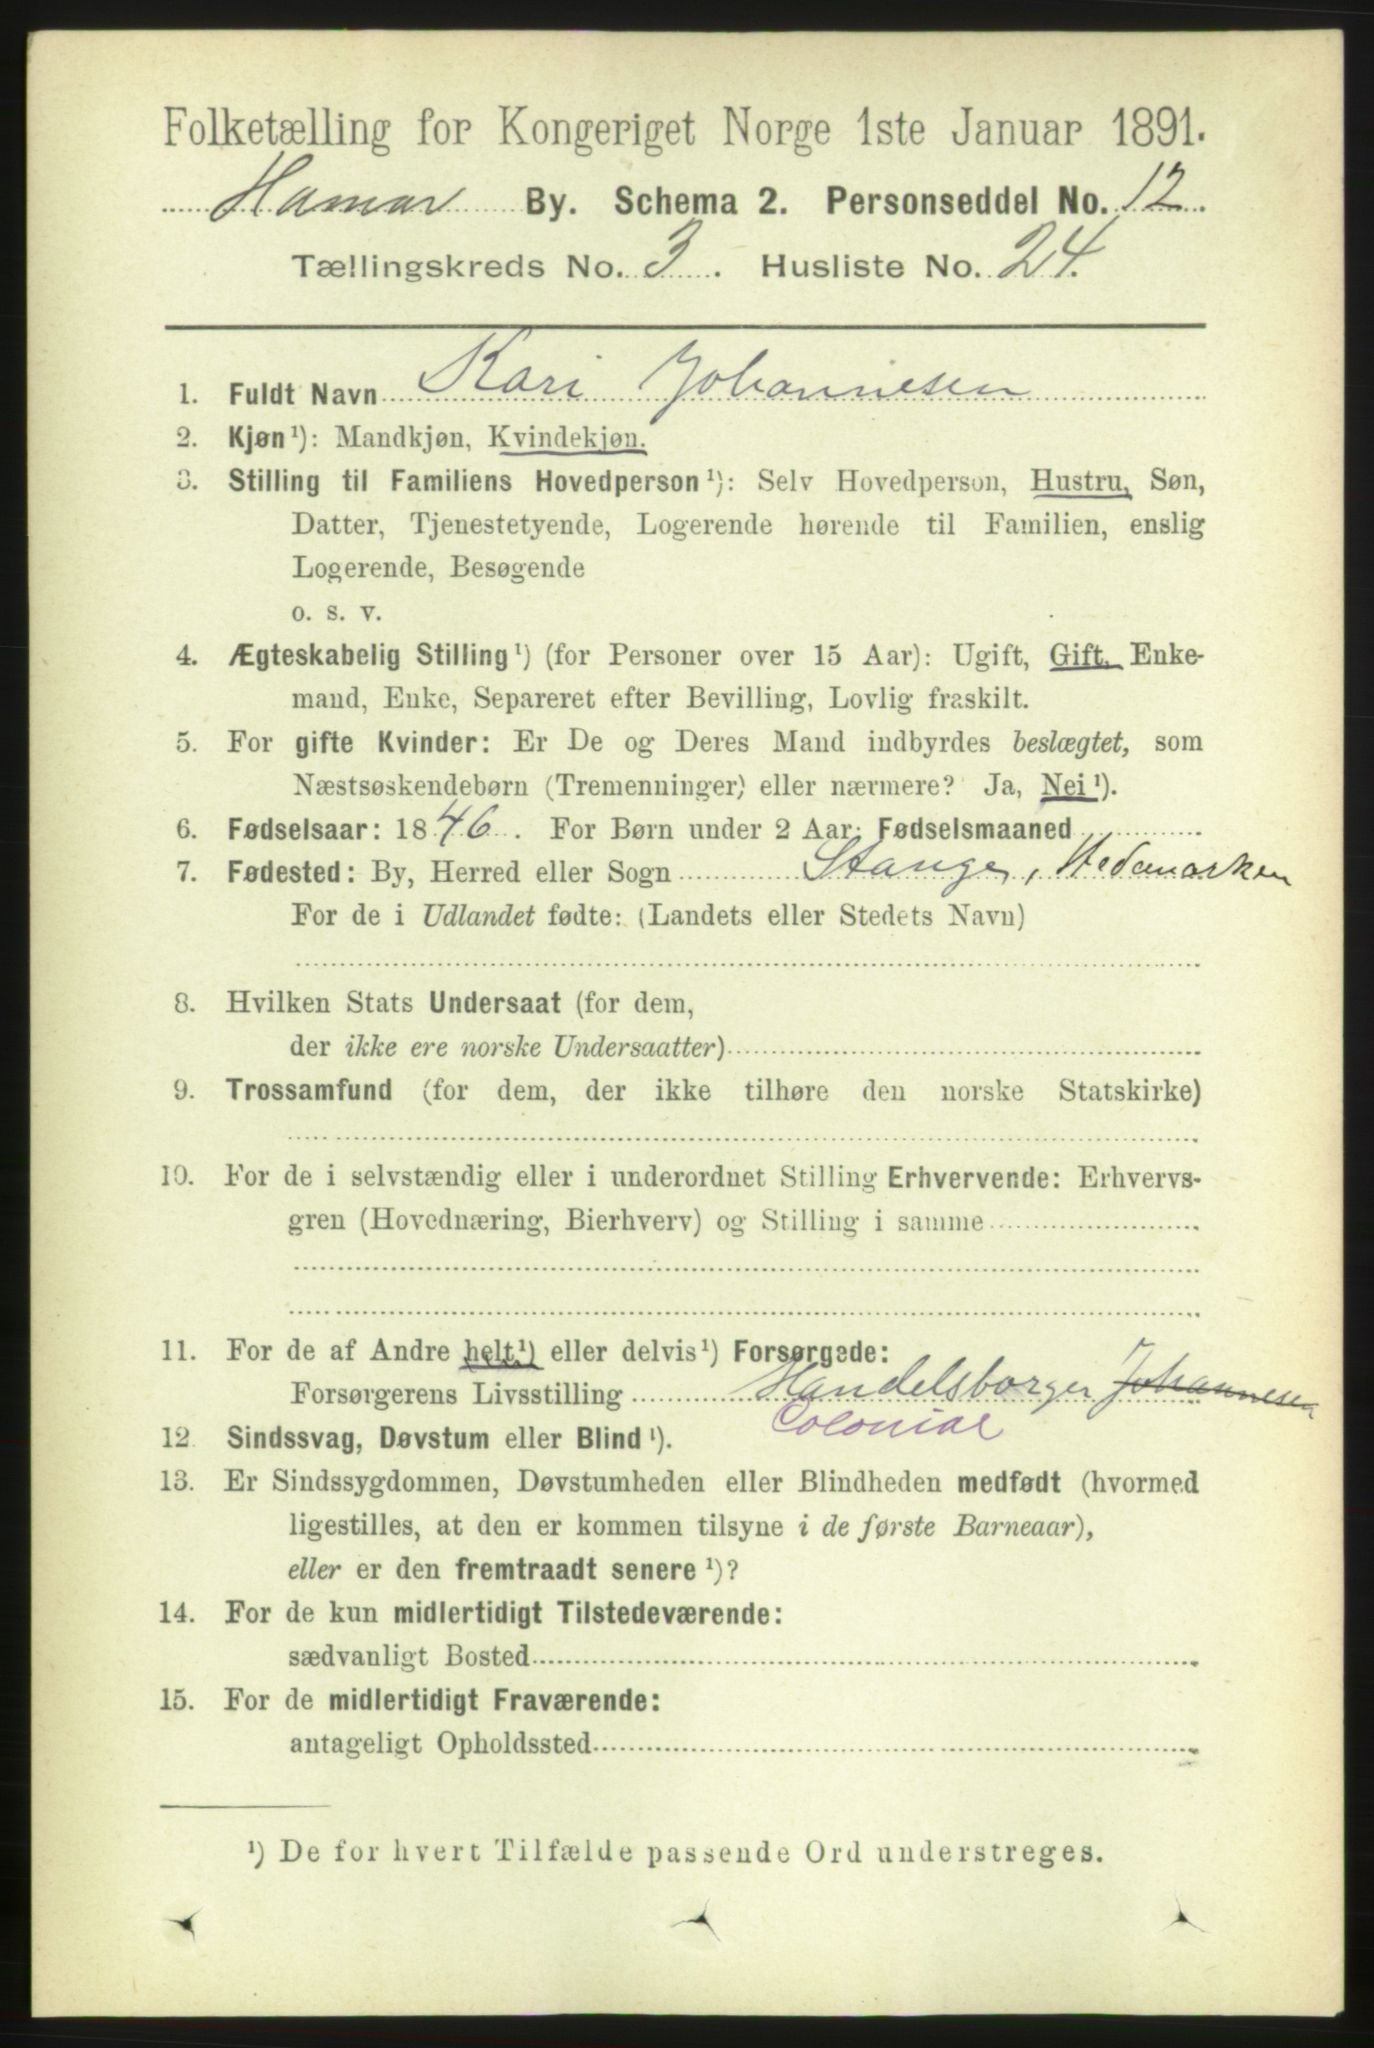 Folketælling for Kongeriget Norge 1ste Januar 1891.
Hamar By. Schema 2. Personseddel No. 12
Tællingskreds No. 3. Husliste No. 24.
1. Fuldt Navn Kari Johannesen
2. Kjøn¹): Mandkjøn, Kvindekjøn.
3. Stilling til Familiens Hovedperson¹): Selv Hovedperson, Hustru, Søn,
Datter, Tjenestetyende, Logerende hørende til Familien, enslig
Logerende, Besøgende
o. s. v.
4. Ægteskabelig Stilling¹) (for Personer over 15 Aar): Ugift, Gift, Enke-
mand, Enke, Separeret efter Bevilling, Lovlig fraskilt.
5. For gifte Kvinder: Er De og Deres Mand indbyrdes beslægtet, som
Næstsøskendebørn (Tremenninger) eller nærmere? Ja, Nei¹).
6. Fødselsaar: 1846. For Børn under 2 Aar: Fødselsmaaned
7. Fødested: By, Herred eller Sogn Stange, Hedemarken
For de i Udlandet fødte: (Landets eller Stedets Navn)
8. Hvilken Stats Undersaat (for dem,
der ikke ere norske Undersaatter)
9. Trossamfund (for dem, der ikke tilhøre den norske Statskirke)
10. For de i selvstændig eller i underordnet Stilling Erhvervende: Erhvervs-
gren (Hovednæring, Bierhverv) og Stilling i samme
11. For de af Andre helt¹) eller delvis¹) Forsørgede:
Forsørgerens Livsstilling Handelsborger Johannesen
Colonial
12. Sindssvag, Døvstum eller Blind¹).
13. Er Sindssygdommen, Døvstumheden eller Blindheden medfødt (hvormed
ligestilles, at den er kommen tilsyne i de første Barneaar),
eller er den fremtraadt senere¹)?
14. For de kun midlertidigt Tilstedeværende:
sædvanligt Bosted
15. For de midlertidigt Fraværende:
antageligt Opholdssted
¹) De for hvert Tilfælde passende Ord understreges.